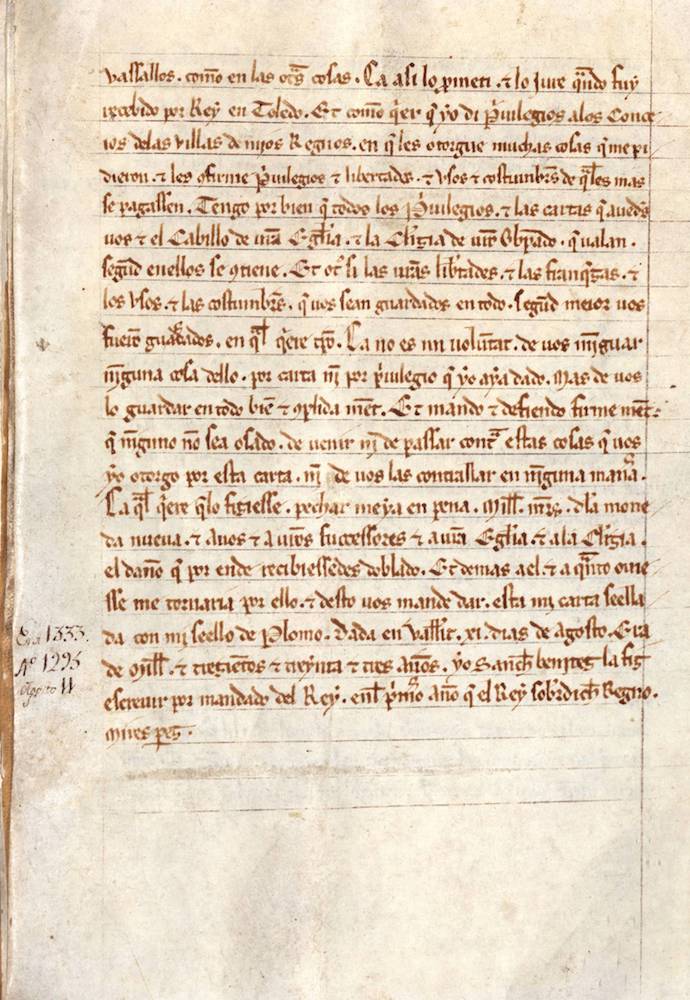 vassallos. como en las otᵃs cosas. Ca asi lo ꝓmeti. ⁊ lo iure qⁿdo fuy
recebido por Rey en Toledo. Et como qⁱer q̄ yo di pⁱuilegios alos Conce
ios delas villas de mios Regnos. en q̄ les otorgue muchas cosas q̄ me pi
dieron. ⁊ les ꝯfirme pⁱuilegios ⁊ libertades. ⁊ vsos ⁊ costumbrˢ de q̄ les mas
se pagassen. Tengo por bien q̄ todos los pⁱuilegios. ⁊ las cartas q̄ auedˢ
uos ⁊ el Cabillo de vr̄a Egl̄ia. ⁊ la Cl̄izia de vr̄o Obp̄ado. q̄ ualan.
segūd en ellos se ꝯtiene. Et otⁱsi las ur̄as lib̄tades. ⁊ las franq̄zas. ⁊
los vsos. ⁊ las costumbrˢ. q̄ uos sean guardados en todo. segūd meior uos
fuerō guardados. en q̄l qⁱere tp̄o. Ca no es mi voluntat. de uos mīguar
nīguna cosa dello. por carta nī por pⁱuilegio q̄ yo aya dado. Mas de uos
lo guardar en todo biē ⁊ ꝯplida mēt. Et mando ⁊ defiendo firme mēt.
q̄ nīguno nō sea osado. de venir nī de passar contᵃ estas cosas q̄ uos
yo otorgo por esta carta. nī de uos las contrallar en nīguna manᵃ.
Ca q̄l qⁱere q̄ lo fiziesse. pechar me ya en pena. Mill. mr̄s. dla mone
da nueua. ⁊ auos ⁊ a uros successores ⁊ a ur̄a Egl̄ia ⁊ ala Cl̄izia.
el daño q̄ por ende recibiessedes doblado. Et demas ael. ⁊ a qⁿto ouie
sse me tornaria por ello. ⁊ desto uos mande dar. esta mi carta seella
da con mi seello de Plomo. Dada en Vall̄it. xi. dias de agosto. Era
de Mill. ⁊ trezietos ⁊ treynta ⁊ tres Años. yo Sanch benitez la fiz
escreuir por mandado del Rey. enl pⁱmo año q̄ el Rey sobrdich Regno.
Era 1333.
Aº 1295
Agosto 11